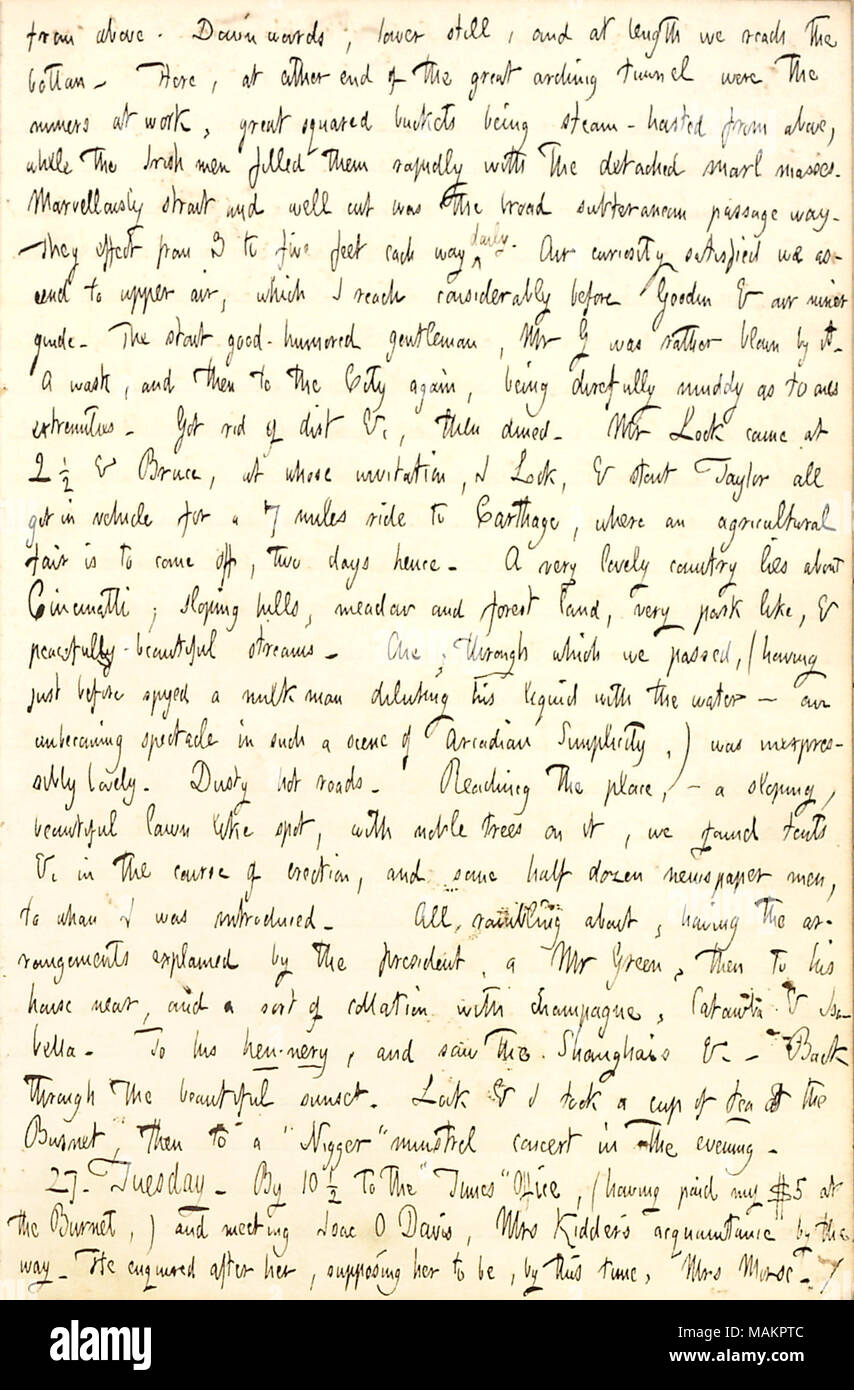 from above. Downwards, lower still, and at length we reach the
bottom. Here, at either end of the great arching tunnel were the
miners at work, great squared buckets being steam-hoisted from above,
while the Irishmen filled them rapidly with the detached marl masses.
Marvellously strait and well cut was the broad subterranean passage way.
They effect from 3 to five feet each way daily. Our curiosity satisfied we as-
cend to upper air, which I reach considerably before Gooden & our miner
guide. The stout good-humored gentleman, Mr G was rather blown by it.
A wash, and then to the City again, being direfully muddy as to ones
extremities. Got rid of dirt &c, then dined. Mr Lock came at
2 ½ & Bruce, at whose invitation, I Lock, & stout Taylor all
get in vehicle for a 7 miles ride to Carthage, where an agricultural
fair is to come off, two days hence. A very lovely country lies about
Cincinatti; sloping hills, meadow and forest land, very park like, &
peacefully-beautiful streams. One, through which we passed, (having
just before spyed a milk man diluting his liquid with the water — an
unbecoming spectacle in such a scene of Arcadian Simplicity,) was inexpres-
sibly lovely. Dusty hot roads. Reaching the place, — a sloping,
beautiful lawn like spot, with noble trees on it, we found tents
&c in the course of erection, and some half dozen newspaper men,
to whom I was introduced. All rambling about, having the ar-
rangements explained by the president, a Mr Green, then to his
house near, and a sort of collation with champagne, Catawba & Isa-
bella. To his hen-nery, and saw the Shanghais &c. Back
through the beautiful sunset. Lock & I took a cup of tea at the
Burnet, then to a "Nigger" minstrel concert in the evening.
27. Tuesday. By 10 ½ to the "Times" Office, (having paid my $5 at
the Burnet,) and meeting Isaac O Davis, Mrs Kidder's acquaintance by the
way. He enquired after her, supposing her to be, by this time, Mrs Morse. /
alamy
Image ID: MAKPTC
www.alamy.com